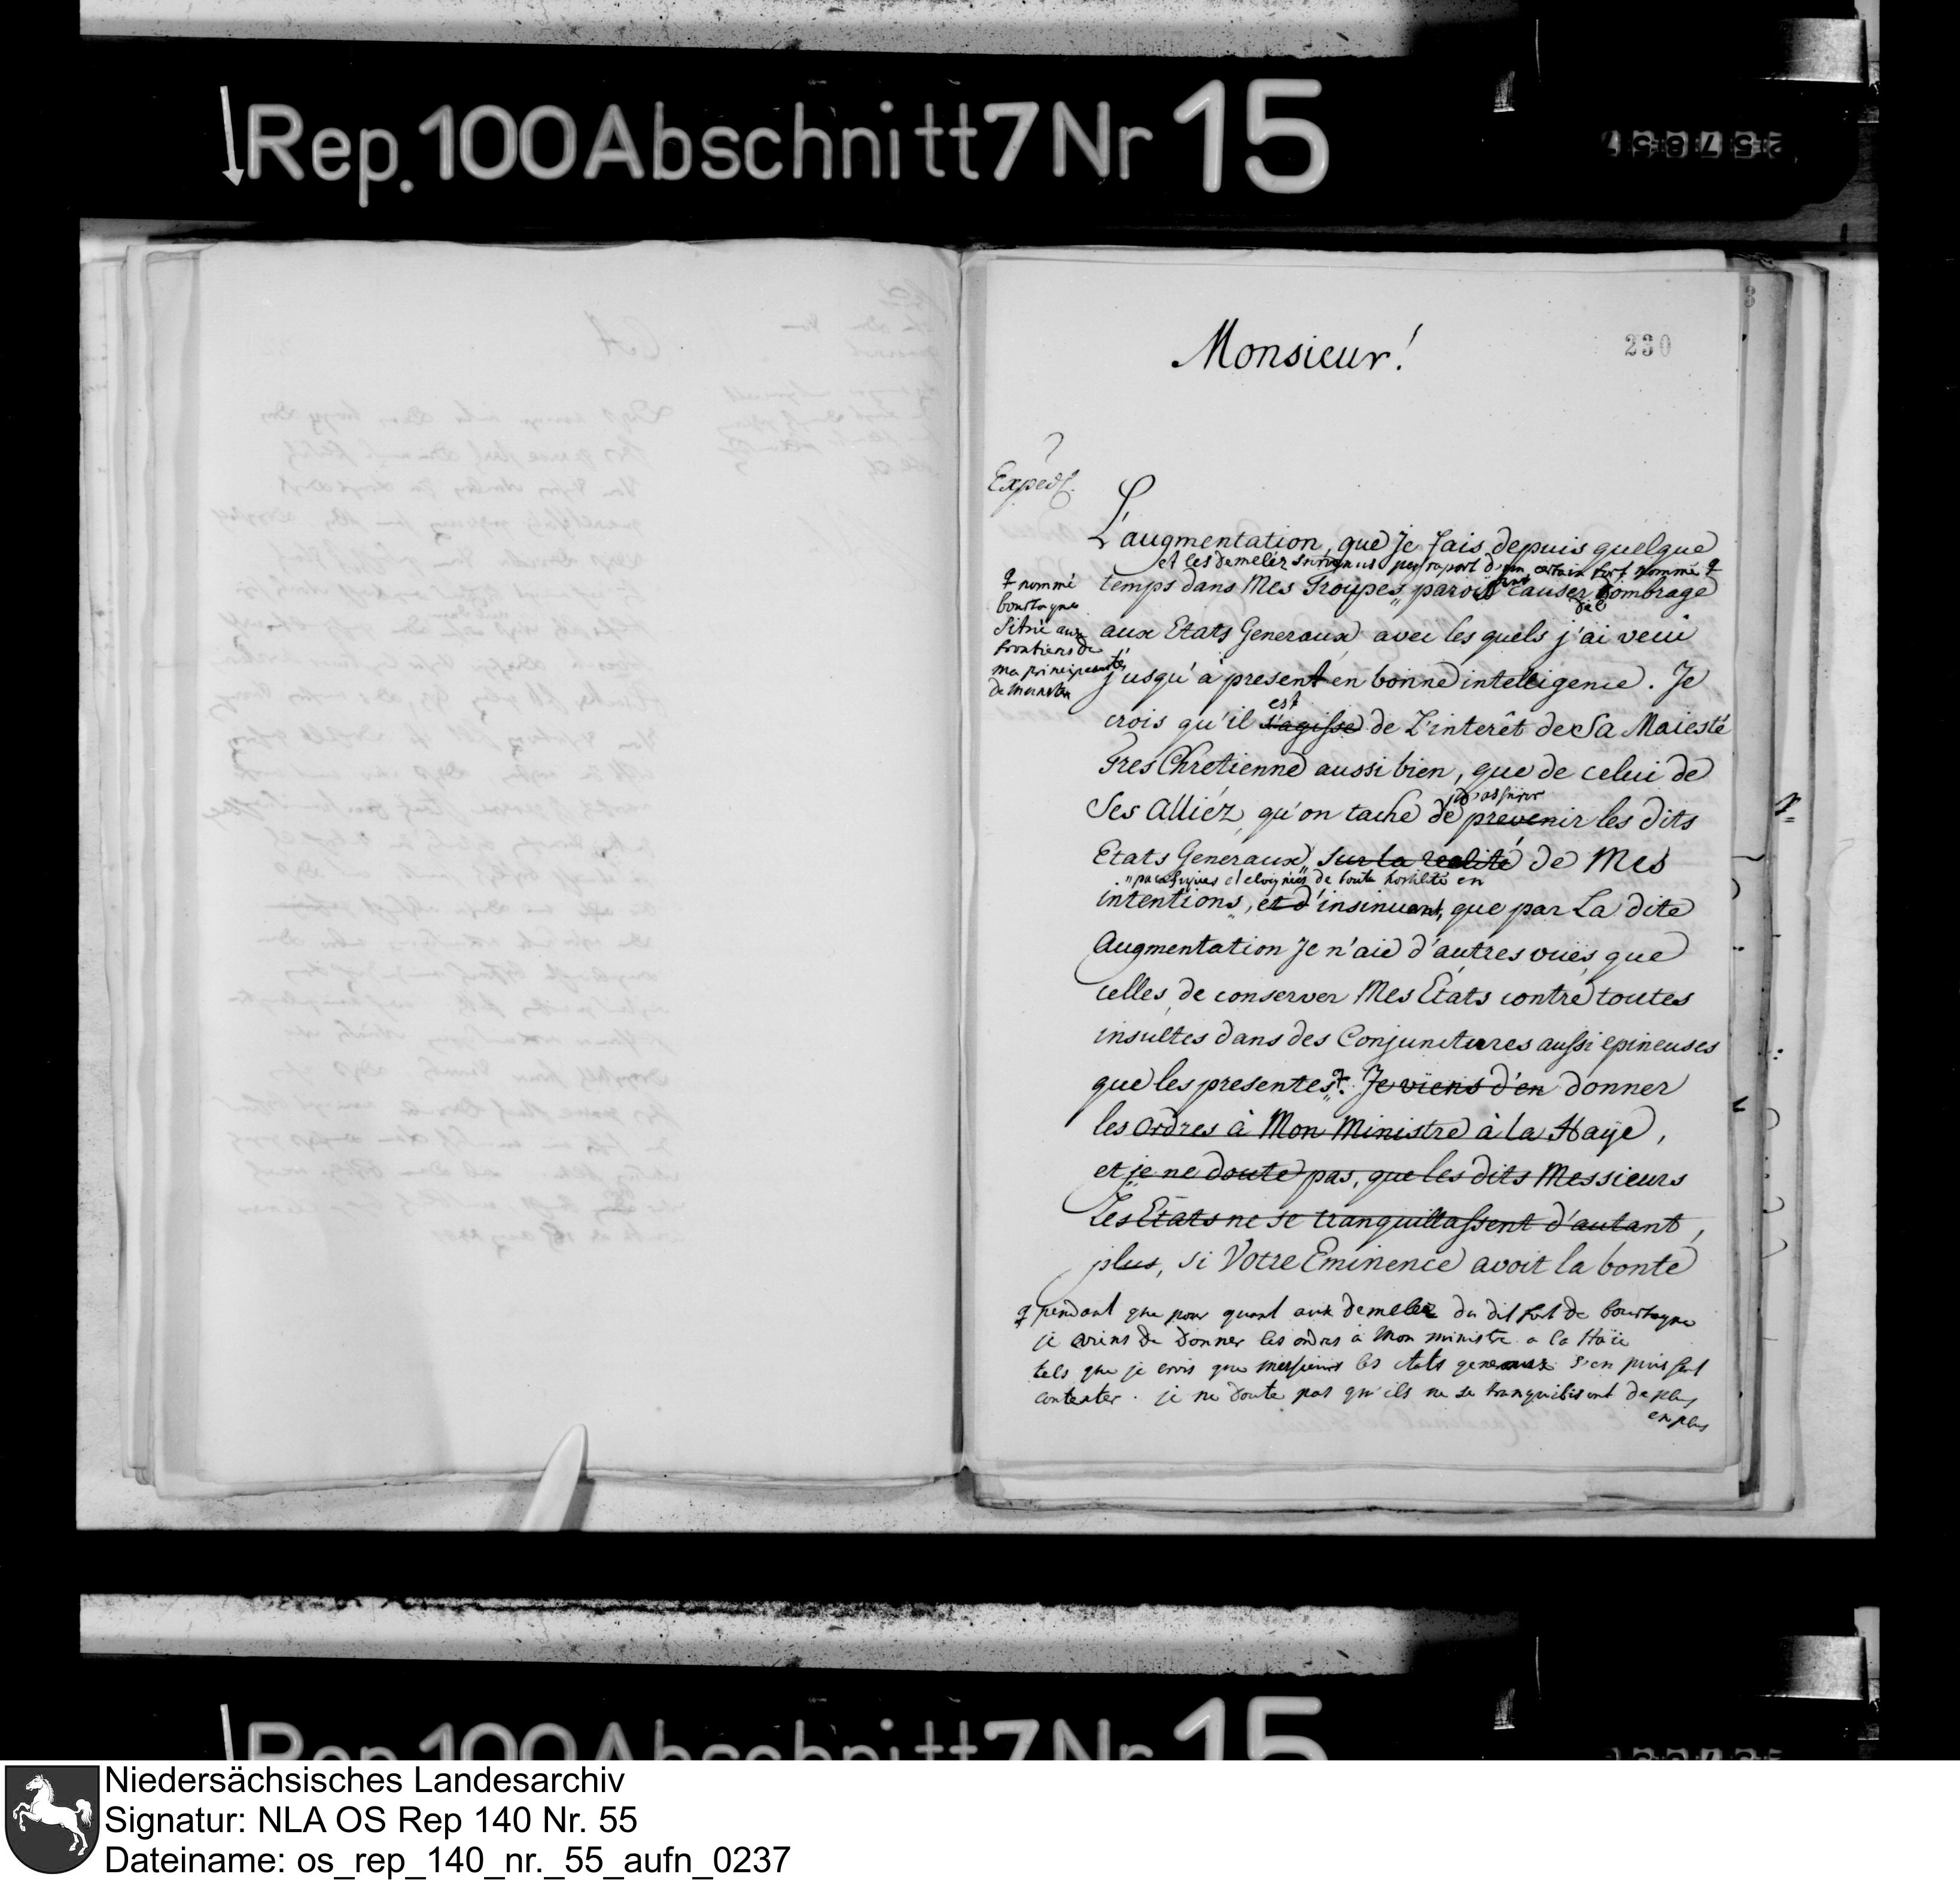 Rep. 100 Abschnitt 7 Nr 15
230
Monsieur!
Exped.
L'augmentation, que Je fais depuis quelque
et les demeléz survenus par raport d'un certain fort nommé
temps dans Mes Troupes, paroit causer d'ombrage
nommé
bourtagne
Situé aux
frontiers de
ma principauté
de Munster
aux Etats Generaux, avec les quels j'ai vecu
jusqu'à present en bonne intelligence. Je
est
crois qu'il s'agisse de L'interêt de Sa Maiesté
Tres Chretienne aussi bien, que de celui de
rassurer
Ses Alliéz, qu'on tache de prevenir les dits
Etats Generaux, sur la realité de Mes
pacifiques et eloignées de toute hostilité en
intentions, et d'insinuant, que par La dite
Augmentation Je n'aie d'autres vuës, que
celles, de conserver Mes Etats contre toutes
insultes dans des Conjunctures aussi epineuses
que les presentes. Je viens d'en donner
les ordres à Mon Ministre à la Haÿe,
et je ne doute pas, que les dits Messieurs
Les Etats ne se tranquillassent d'autant,
plus, si Votre Eminence avoit la bonté
pendant que pour quant aux demelez du dit fort de bourtagne
je viens de donner les ordres à Mon ministre a la Haïe
tels que je crois que messieurs les etats generaux s'en puissent
contenter. je ne doute pas qu'ils ne se tranquilisent de plus
en plus
Rep. 100 Abschnitt 7 Nr 15
Niedersächsisches Landesarchiv
Signatur: NLA OS Rep 140 Nr. 55
Dateiname: os_rep_140_nr._55_aufn_0237